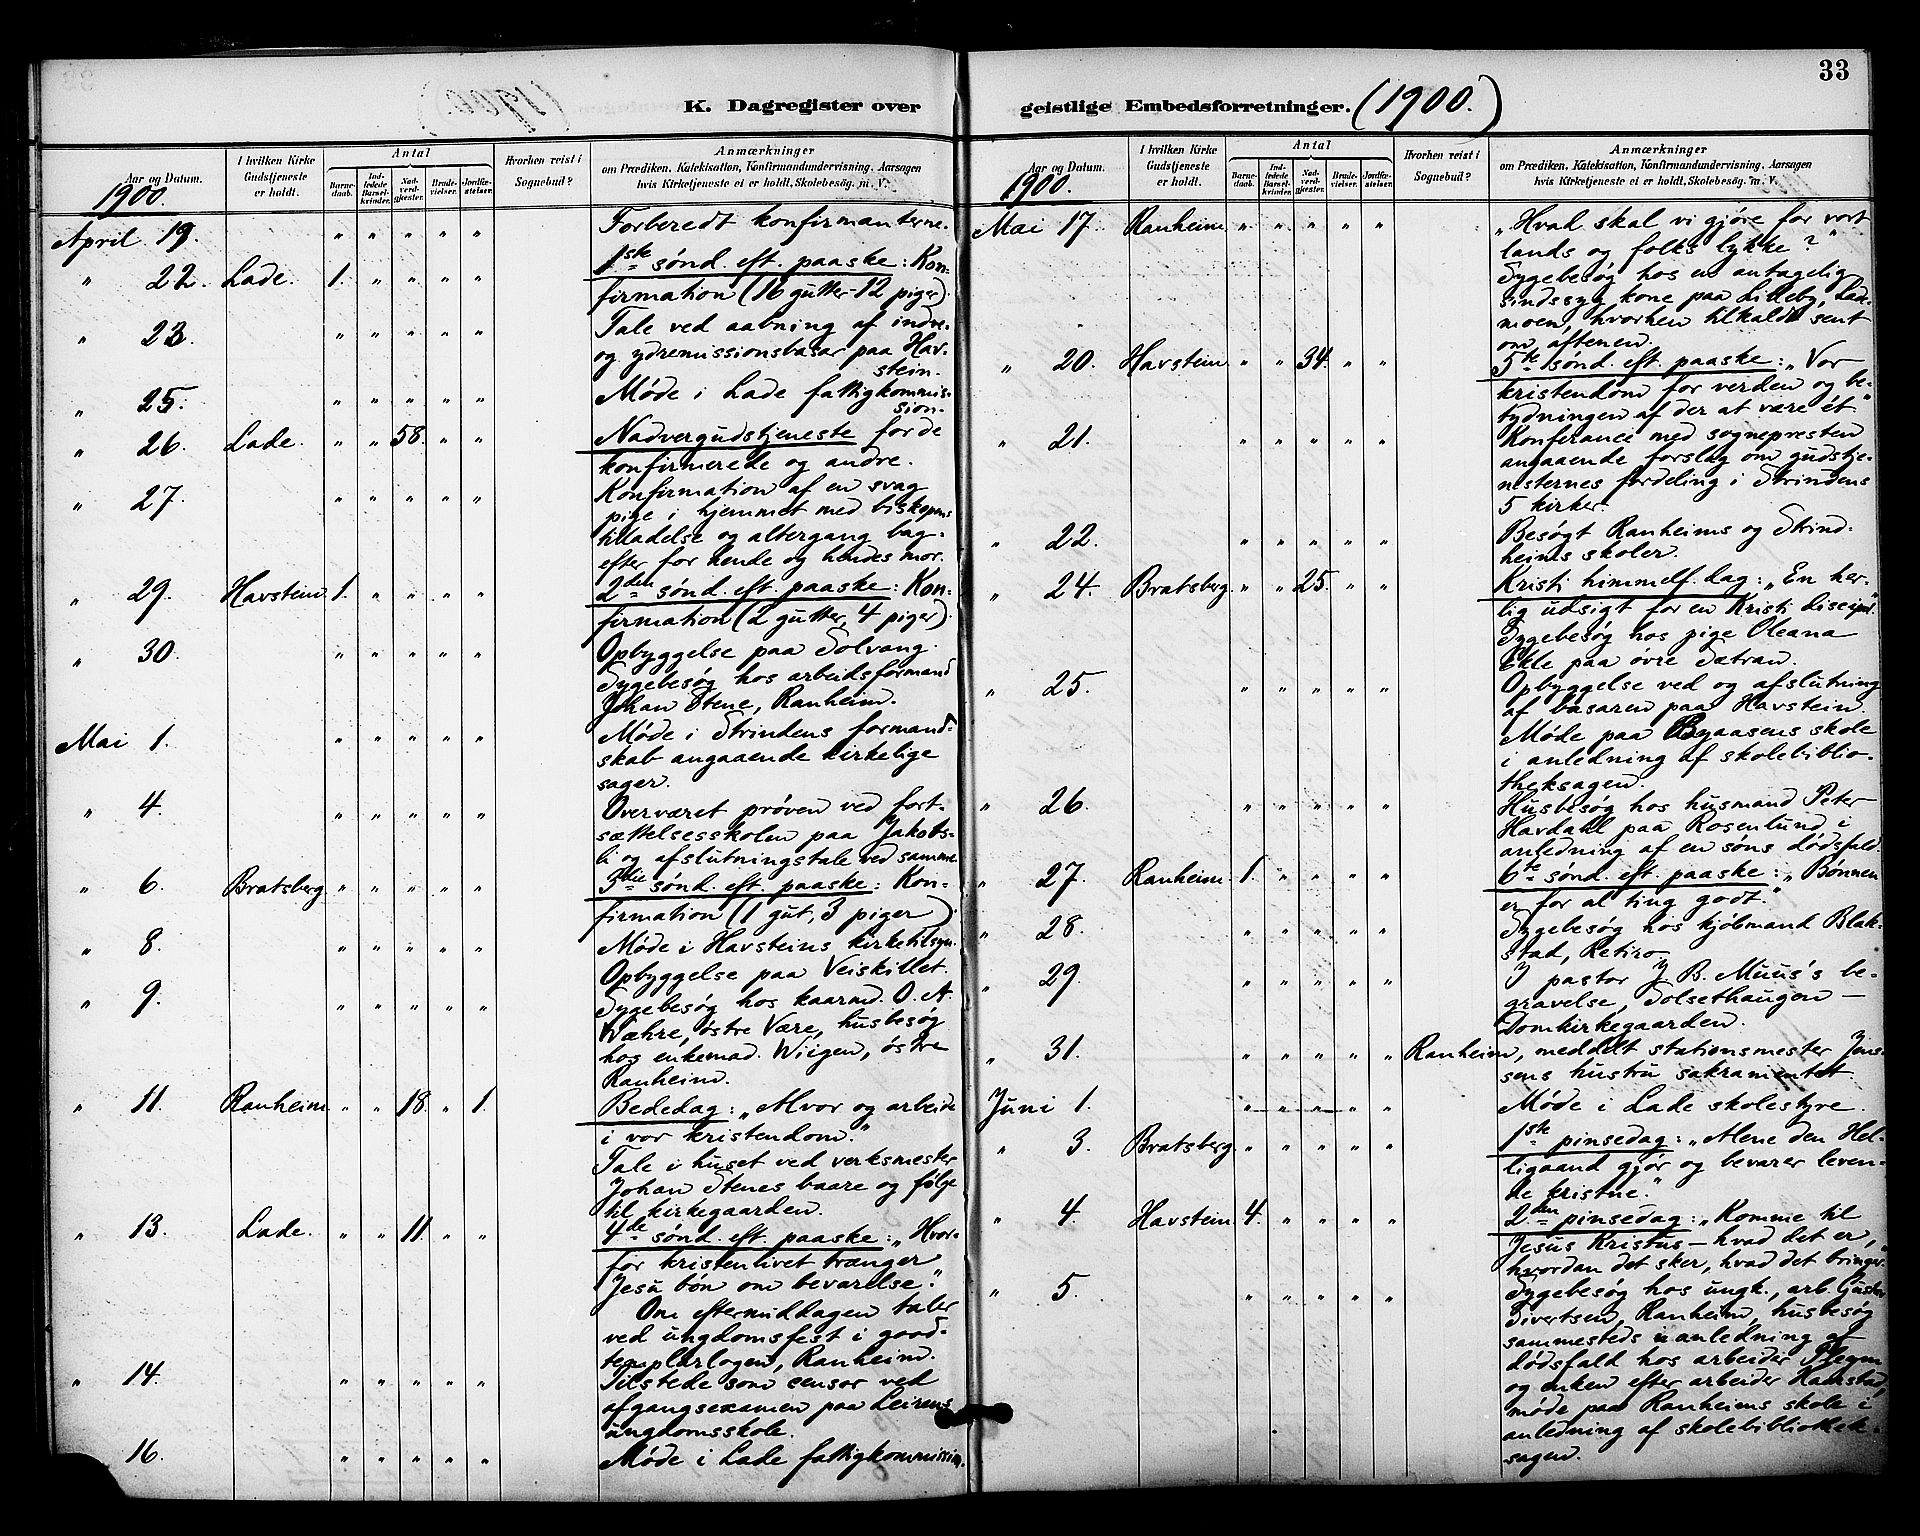 33
K. Dagregister over geistlige Embedsforretninger. (1900.)
Aar og Datum.
I hvilken Kirke Gudstjeneste er holdt.
Antal
Barne-daab.
Ind-ledede Barsel-kvinder.
Nad-verd-gjæster.
Brude-vielser.
Jordfæ-stelser.
Hvorhen reist i Sognebud?
Anmærkninger
om Prædiken, Katekisation, Konfirmandundervisning, Aarsagen
hvis Kirketjeneste ei er holdt, Skolebesøg. m. V.
1900.
April 19. " " " " " Forberedt konfirmanterne.
" 22. Lade. 1. " " " " 1ste sønd. eft. paaske: Kon-
firmation (16 gutter - 12 piger).
" 23. " " " " " Tale ved aabning af indre-
og ydremissionsbasar paa Hav-
stein.
" 25. " " " " " Møde i Lade fattigkommis-
sion.
" 26. Lade. " " 58. " " Nadvergudstjeneste for de
konfirmerede og andre.
" 27. " " " " " Konfirmation af en svag
pige i hjemmet med biskopens
tilladelse og altergang bag-
efter for hende og hendes mor.
" 29. Havstein. 1. " " " " 2den sønd. eft. paaske: Kon-
firmation (2 gutter, 4 piger).
" 30. " " " " " Opbyggelse paa Solvang.
Sygebesøg hos arbeidsformand
Johan Stene, Ranheim.
Mai 1. " " " " " Møde i Strindens formand-
skab angaaende kirkelige
sager.
" 4. " " " " " Overværet prøven ved fort-
sættelsesskolen paa Jakobs-
li og afslutningstale ved samme.
" 6. Bratsberg " " " " " 3die sønd. eft. paaske: Kon-
firmation (1 gut, 3 piger).
" 8. " " " " " Møde i Havsteins kirketilsyn.
Opbyggelse paa Veiskillet.
" 9. " " " " " Sygebesøg hos kaarmd. O. A.
Wæhre, østre Være, husbesøg
hos enkemad. Wiigen, østre
Ranheim.
" 11. Ranheim " " 18. " 1. Bededag: „Alvor og arbeide
i vor kristendom."
Tale i huset ved verksmester
Johan Stenes baare og følge
til kirkegaarden.
" 13. Lade. " " 11. " " 4de sønd. eft. paaske: „Hvor-
for kristenlivet trænger
Jesu bøn om bevarelse."
Om eftermiddagen taler
ved ungdomsfest i good-
templarlogen, Ranheim.
" 14. " " " " " Tilstede som censor ved
afgangsexamen paa Leirens
ungdomsskole.
" 16. " " " " " Møde i Lade fattigkommission.
Aar og Datum.
I hvilken Kirke Gudstjeneste er holdt.
Antal
Barne-daab.
Ind-ledede Barsel-kvinder.
Nad-verd-gjæster.
Brude-vielser.
Jordfæ-stelser.
Hvorhen reist i Sognebud?
Anmærkninger
om Prædiken, Katekisation, Konfirmandundervisning, Aarsagen
hvis Kirketjeneste ei er holdt, Skolebesøg. m. V.
1900.
Mai 17. Ranheim. " " " " " „Hvad skal vi gjøre for vort
lands og folks lykke?"
Sygebesøg hos en antagelig
sindssyg kone paa Lilleby, Lade-
moen, hvorhen tilkaldt sent
om aftenen.
" 20. Havstein. " " 34. " " 5te sønd. eft. paaske: „Vor
kristendom for verden og be-
tydningen af der at være ét."
" 21. " " " " " Konferance med sognepresten
angaaende forslag om gudstje-
nesternes fordeling i Strindens
5 kirker.
" 22. " " " " " Besøgt Ranheims og Strind-
heims skoler.
" 24. Bratsberg. " " 25. " " Kristi himmelf. dag: „En her-
lig udsigt for en Kristi discipel."
Sygebesøg hos pige Oleana
Ekle paa øvre Sætran.
" 25. " " " " " Opbyggelse ved og afslutning
af basaren paa Havstein.
Møde paa Byaasens skole
i anledning af skolebiblio-
theksagen.
" 26. " " " " " Husbesøg hos husmand Peter
Havdahl paa Rosenlund i
anledning af en søns dødsfald.
" 27. Ranheim 1. " " " " 6te sønd. eft. paaske: „Bønnen
er for al ting godt."
" 28. " " " " " Sygebesøg hos kjøbmand Blak-
stad, Retiro.
" 29. " " " " " I pastor J. B. Muus's be-
gravelse, Solsethaugen —
Domkirkegaarden.
" 31. " " " " " Ranheim, meddelt stationsmester Jens-
sens hustru sakramentet.
Juni 1. " " " " " Møde i Lade skolestyre.
" 3. Bratsberg. " " " " " 1ste pinsedag: „Alene den Hel-
ligaand gjør og bevarer leven-
de kristne."
" 4. Havstein 4. " " " " 2den pinsedag: „Komme til
Jesus Kristus — hvad det er,
hvordan det sker, hvad det bringer."
" 5. " " " " " Sygebesøg hos ungk., arb. Gustav
Sivertsen, Ranheim, husbesøg
sammesteds i anledning af
dødsfald hos arbeider
og enken efter arbeider
møde paa Ranheims skole i
anledning af skolebibliothek-
sagen.